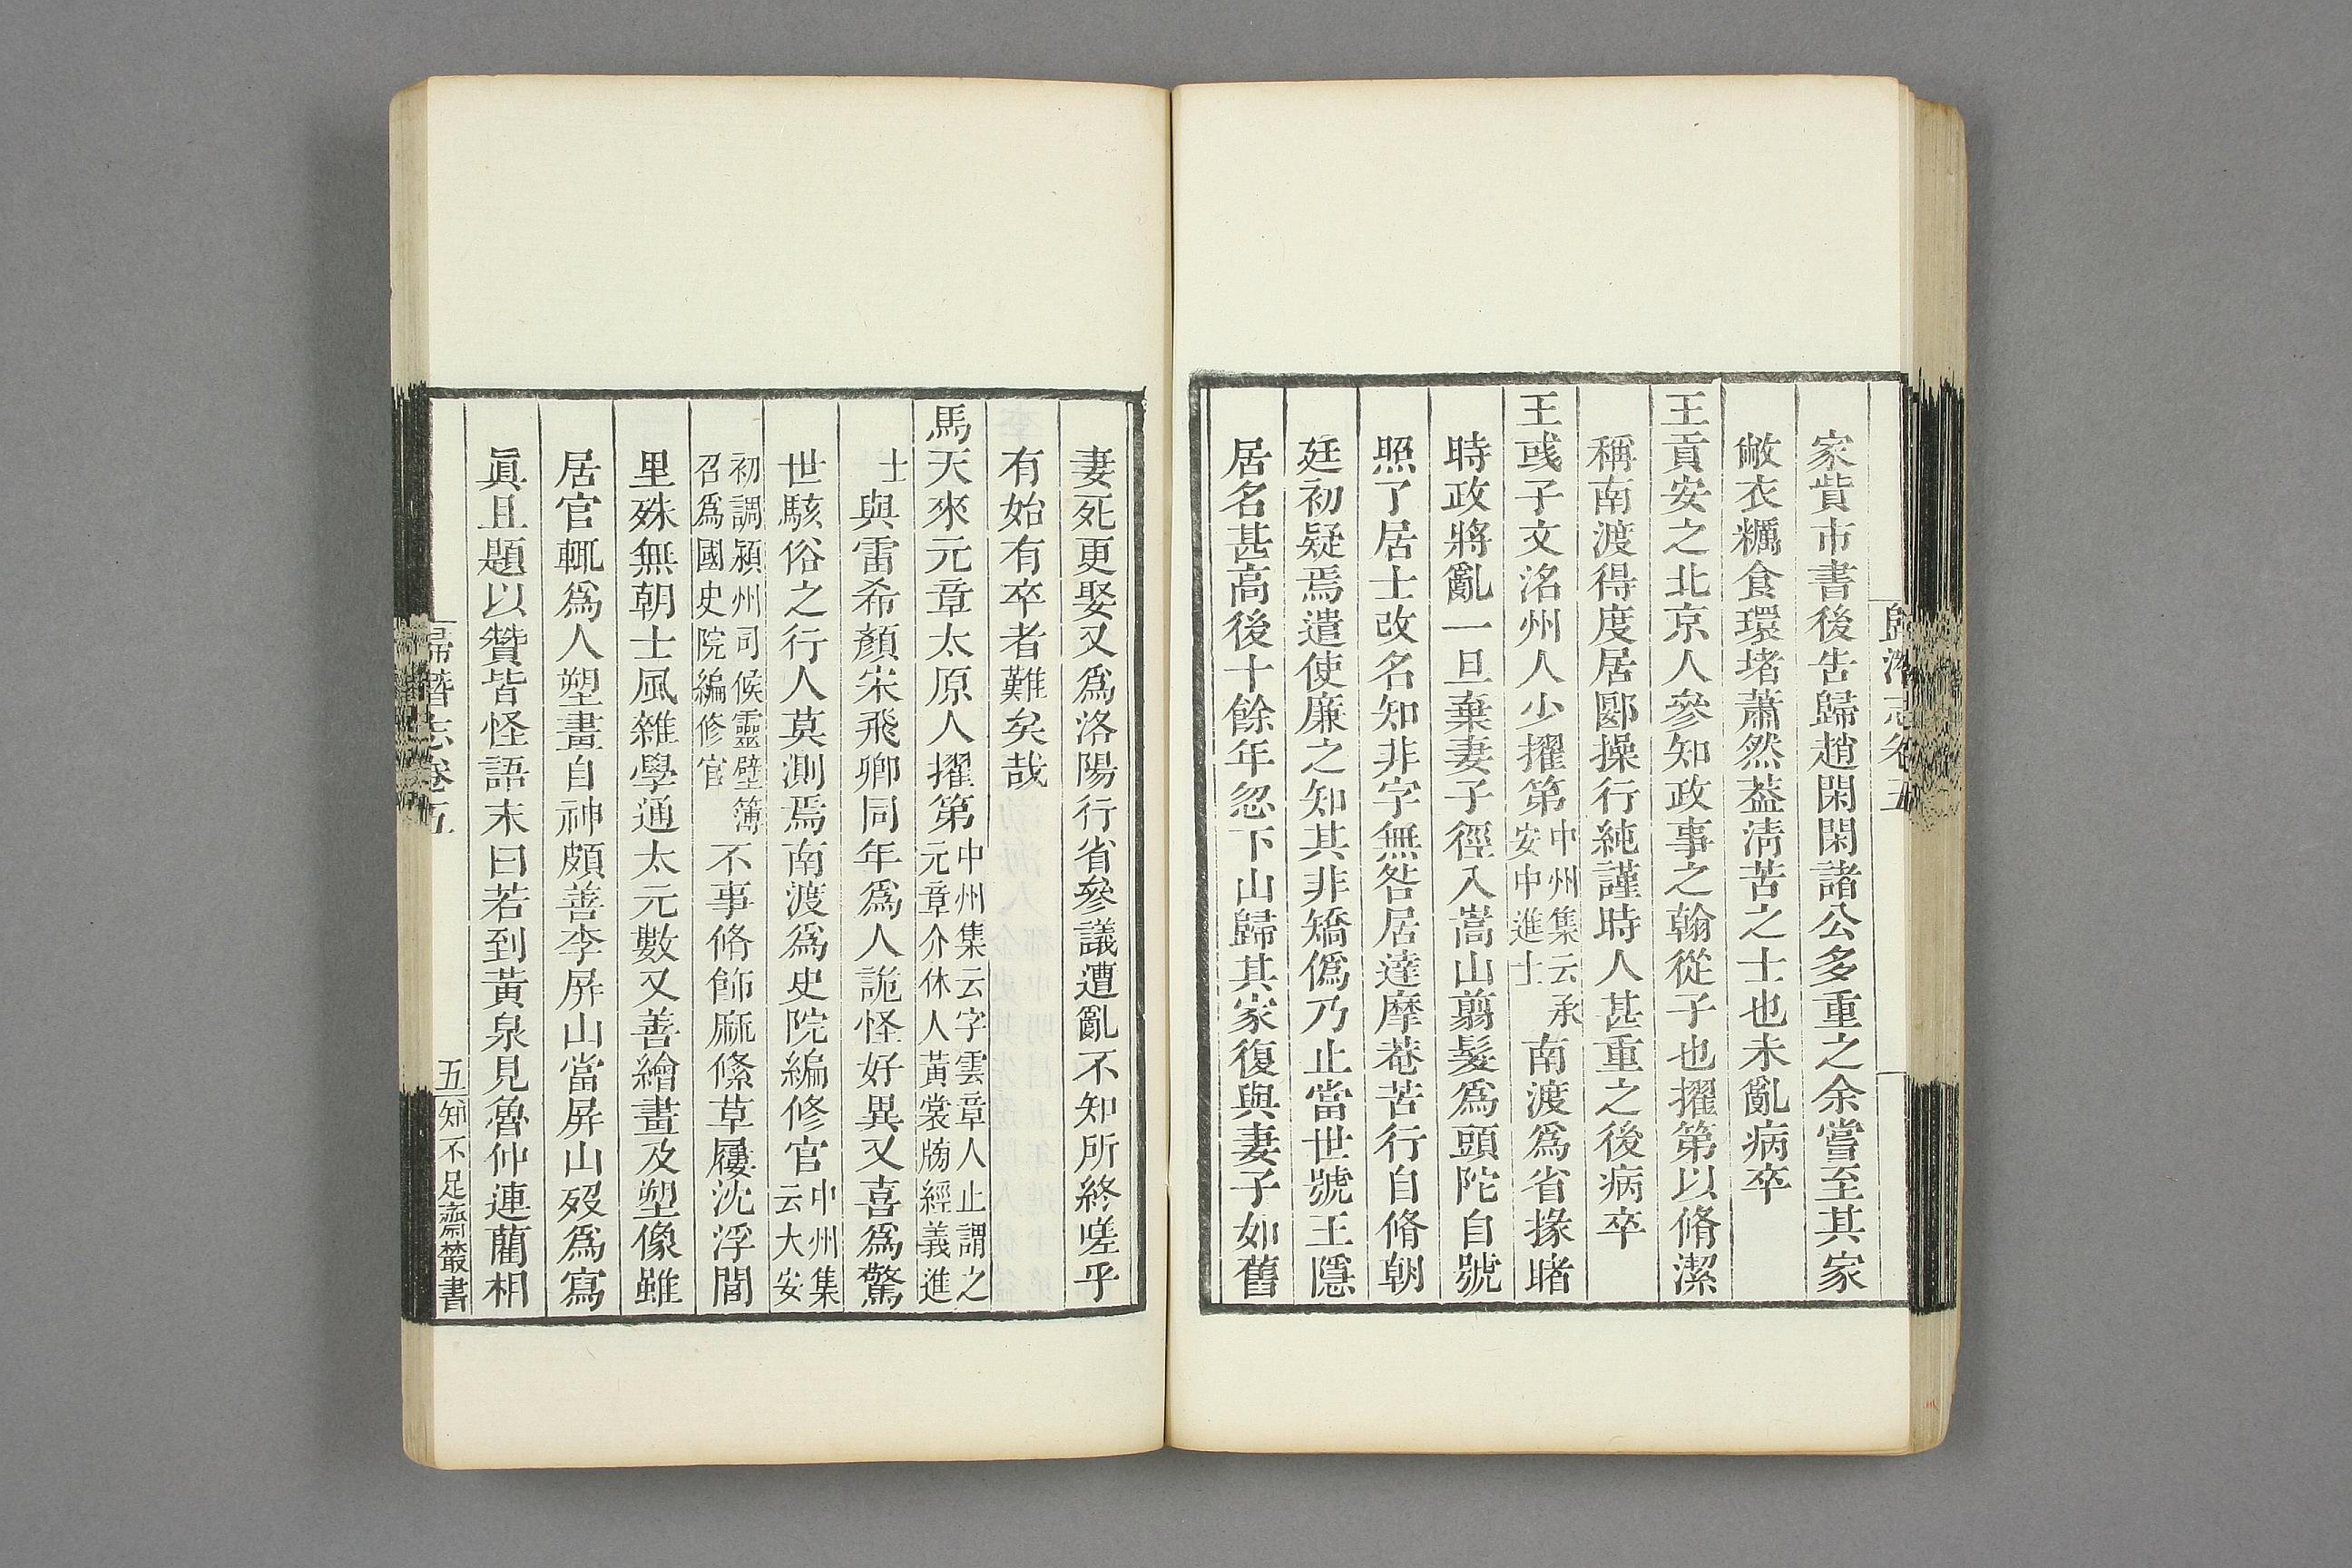 歸潛志卷五
家貲市書後告歸趙閑閑諸公多重之余嘗至其家
敝衣糲食環堵蕭然葢淸苦之士也未亂病卒
王貢安之北京人參知政事之翰從子也擢第以脩潔
稱南渡得度居郾操行純謹時人甚重之後病卒
王彧子文洺州人少擢第中州集云承安中進士南渡爲省掾睹
時政將亂一旦棄妻子徑入嵩山翦髮爲頭陀自號
照了居士改名知非字無咎居達摩菴苦行自脩朝
廷初疑焉遣使廉之知其非矯僞乃止當世號王隱
居名甚高後十餘年忽下山歸其家復與妻子如舊
妻死更娶又爲洛陽行省參議遭亂不知所終嗟乎
有始有卒者難矣哉
馬天來元章太原人擢第中州集云字雲章人止謂之元章介休人黃裳牓經義進
士與雷希顏宋飛卿同年爲人詭怪好異又喜爲驚
世駭俗之行人莫測焉南渡爲史院編修官中州集云大安
初調潁州司候靈壁簿召爲國史院編修官不事脩飾麻絛草屨沈浮閭
里殊無朝士風雜學通太元數又善繪畫及塑像雖
居官輒爲人塑畫自神頗善李屏山當屏山歿爲寫
眞且題以贊皆怪語末曰若到黃泉見魯仲連藺相
歸潛志卷五
五
知不足齋叢書